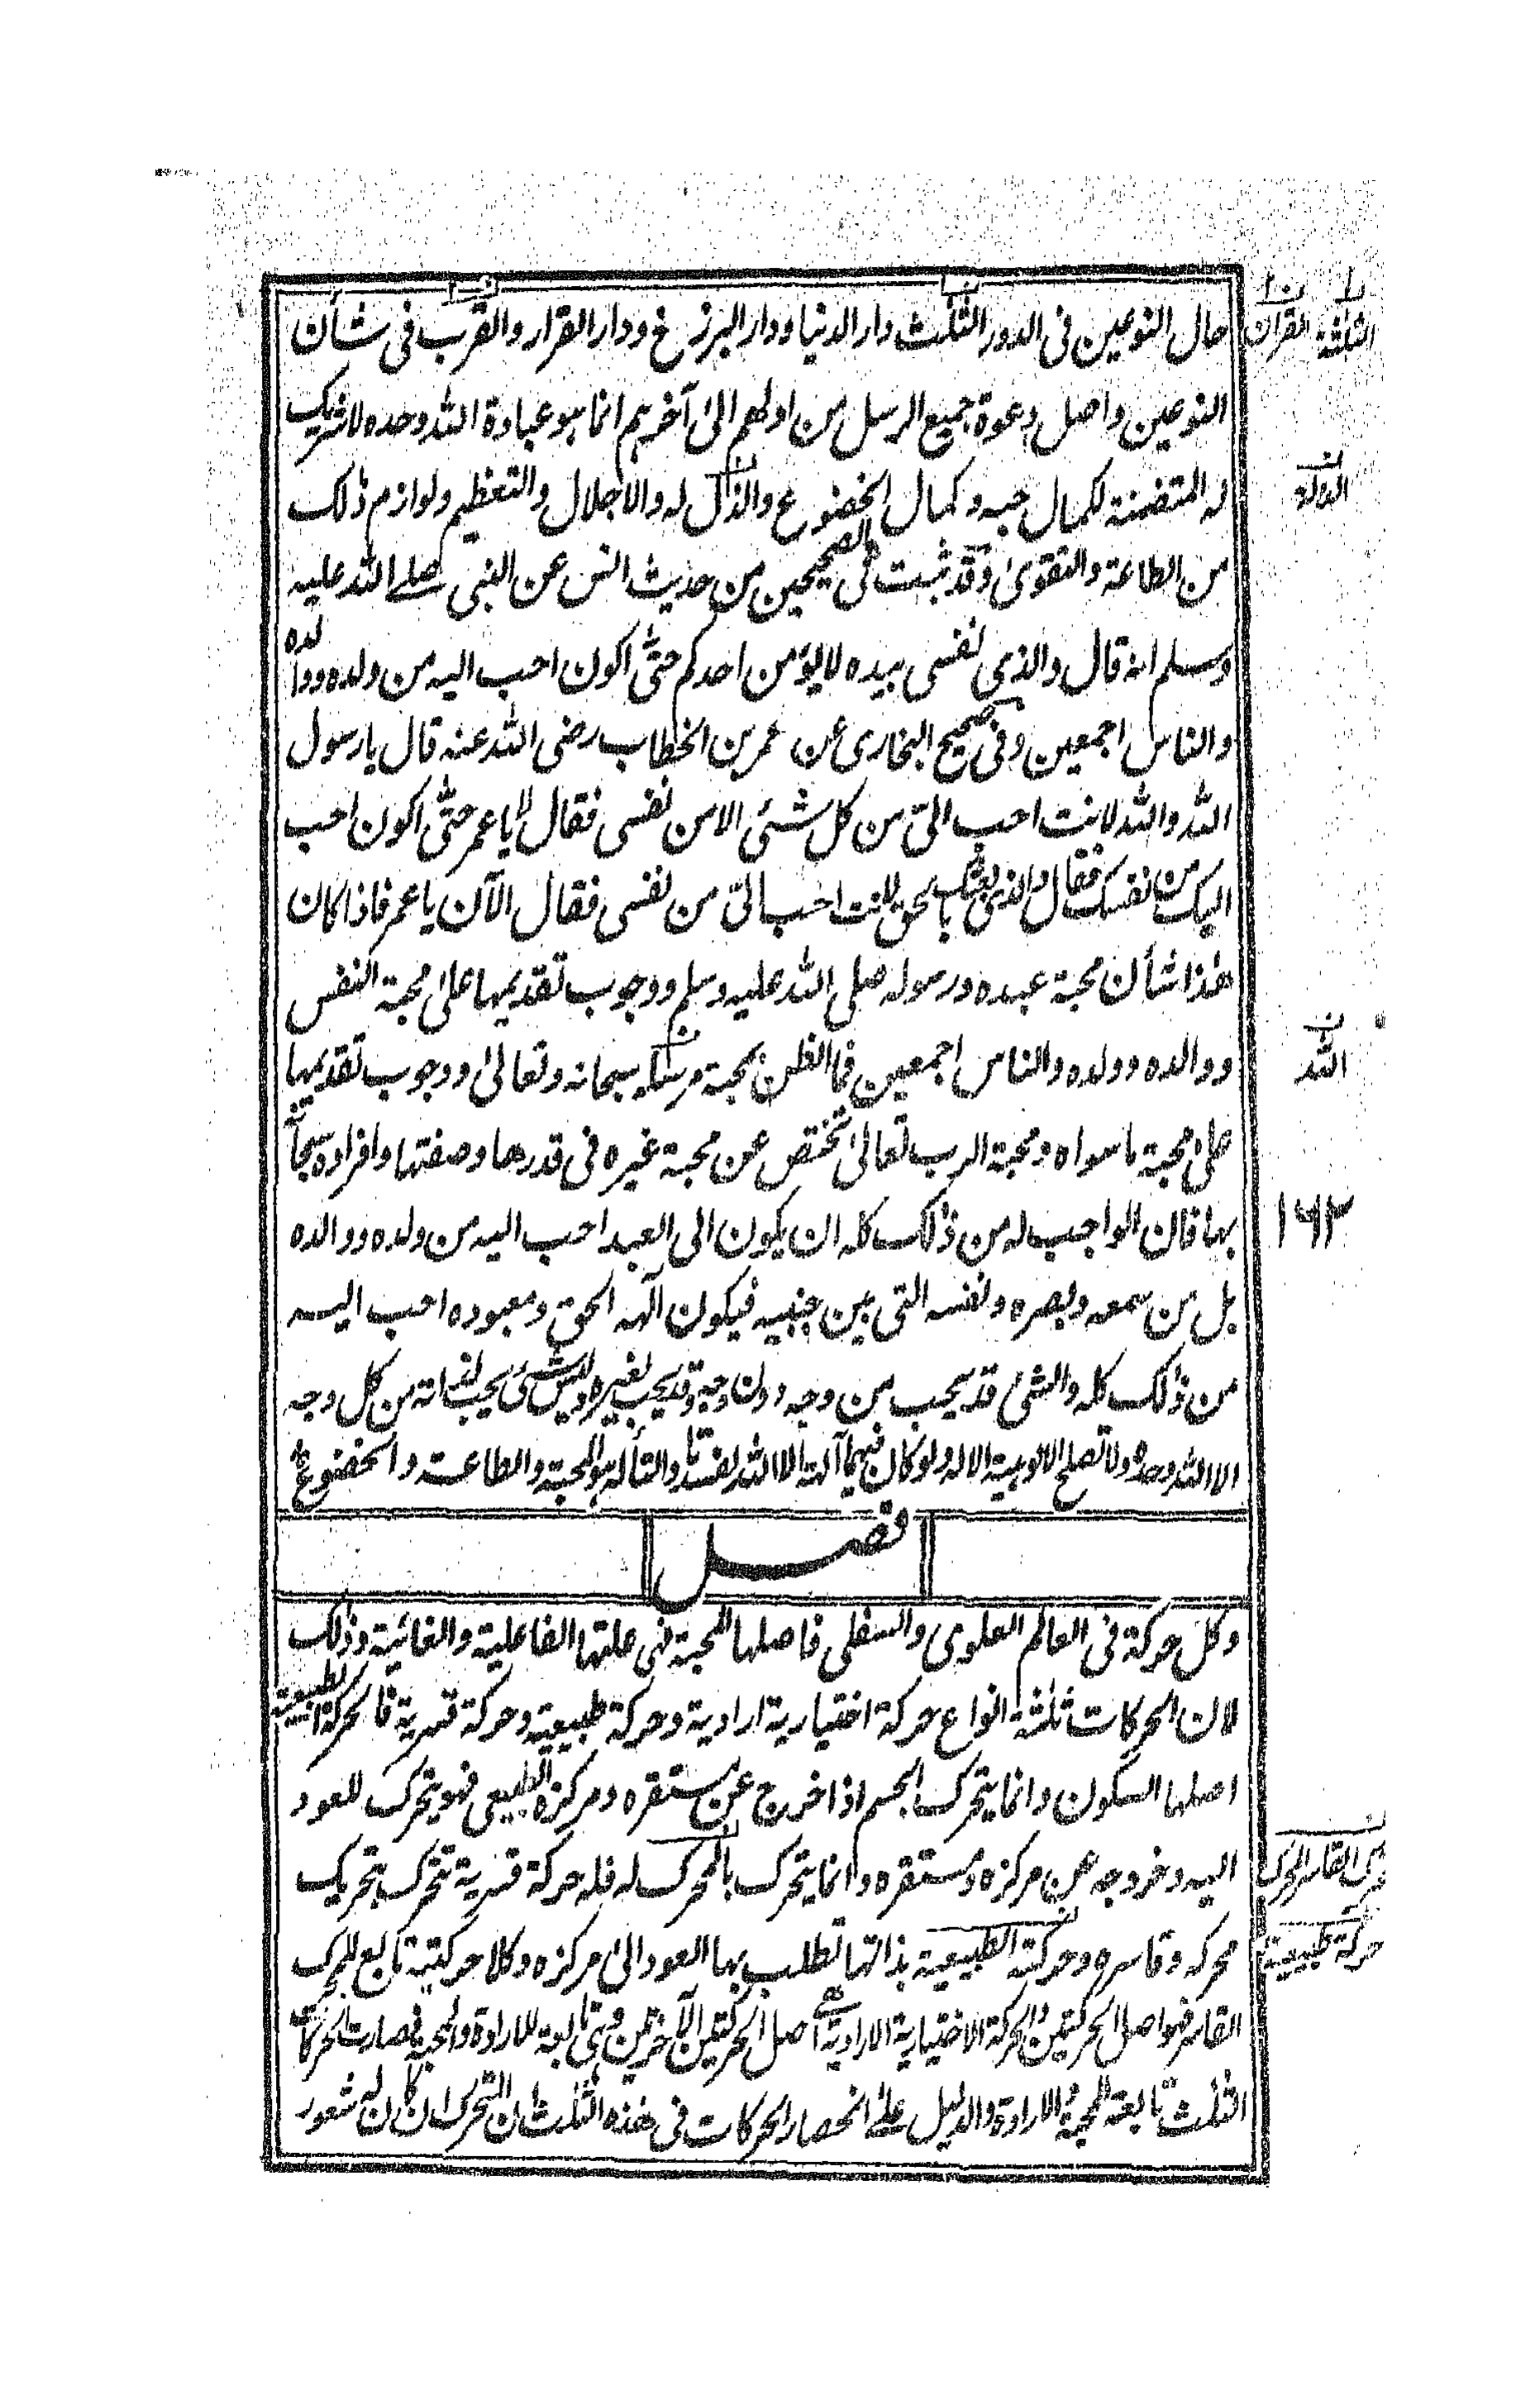 حال النوعين فى الدور الثلث دار الدنيا ودار البرزخ ودار القرار والقرب فى شأن
النوعين واصل دعوة جميع الرسل من اولهم الىٰ آخرهم انما هو عبادة الله وحده لا شريك
له المتضمنة لكمال حبه وكمال الخضوع والذل له والاجلال والتعظيم ولوازم ذلك
من الطاعة والتقوىٰ وقد ثبت فى الصحيحين من حديث انس عن النبى صلے الله عليه
وسلم انه قال والذى نفسى بيده لا يؤمن احدكم حتىٰ اكون احب اليه من ولده ووالده
والناس اجمعين وفى صحيح البخارى عن عمر بن الخطاب رضى الله عنه قال يا رسول
الله والله لانت احب الىّ من كل شئ الا من نفسى فقال لا يا عمر حتىٰ اكون احب
اليك من نفسك فقال والذى بعثك بالحق لانت احب الىّ من نفسى فقال الآن يا عمر فاذا كان
هٰذا شأن محبة عبده ورسوله صلى الله عليه وسلم ووجوب تقديمها علىٰ محبة النفس
ووالده وولده والناس اجمعين فما الظن بمحبة مرسله سبحانه وتعالىٰ ووجوب تقديمها
علىٰ محبة ما سواه ومحبة الرب تعالىٰ تختص عن محبة غيره فى قدرها وصفتها وافراده سبحانه
بها فان الواجب له من ذلك كله ان يكون الى العبد احب اليه من ولده ووالده
بل من سمعه وبصره ونفسه التى بين جنبيه فيكون آلهه الحق ومعبوده احب اليه
من ذلك كله والشئ قد يحب من وجه دون وجه وقد يحب لغيره وليس شئ يحب لذاته من كل وجه
الا الله وحده ولا تصلح الالوهية الا له ولو كان فيهما آلهة الا الله لفسدتا والتأله هو المحبة والطاعة والخضوع
فصل
وكل حركة فى العالم العلوى والسفلى فاصلها المحبة فهى علتها الفاعلية والغائية وذلك
لان الحركات ثلثة انواع حركة اختيارية ارادية وحركة طبيعية وحركة قسرية فالحركة الطبيعية
اصلها السكون وانما يتحرك الجسم اذا خرج عن مستقره ومركزه الطبيعى فهو يتحرك للعود
اليه وخروجه عن مركزه ومستقره وانما يتحرك بالمحرك له فله حركة قسرية تتحرك بتحريك
محركه وقاسره وحركة الطبيعية بذاتها تطلب بها العود الىٰ مركزه وكلا حركتيه تابع للمحرك
القاسر فهو اصل الحركتين والحركة الاختيارية الارادية هى اصل الحركتين الآخرتين وهى تابعة للارادة والمحبة فصارت الحركات
الثلث تابعة للمحبة والارادة والدليل علىٰ انحصار الحركات فى هٰذه الثلث ان المتحرك ان كان له شعور
الثلثة القرآن
الله
١٦٢
القاسر المحرك
حركة طبيعية